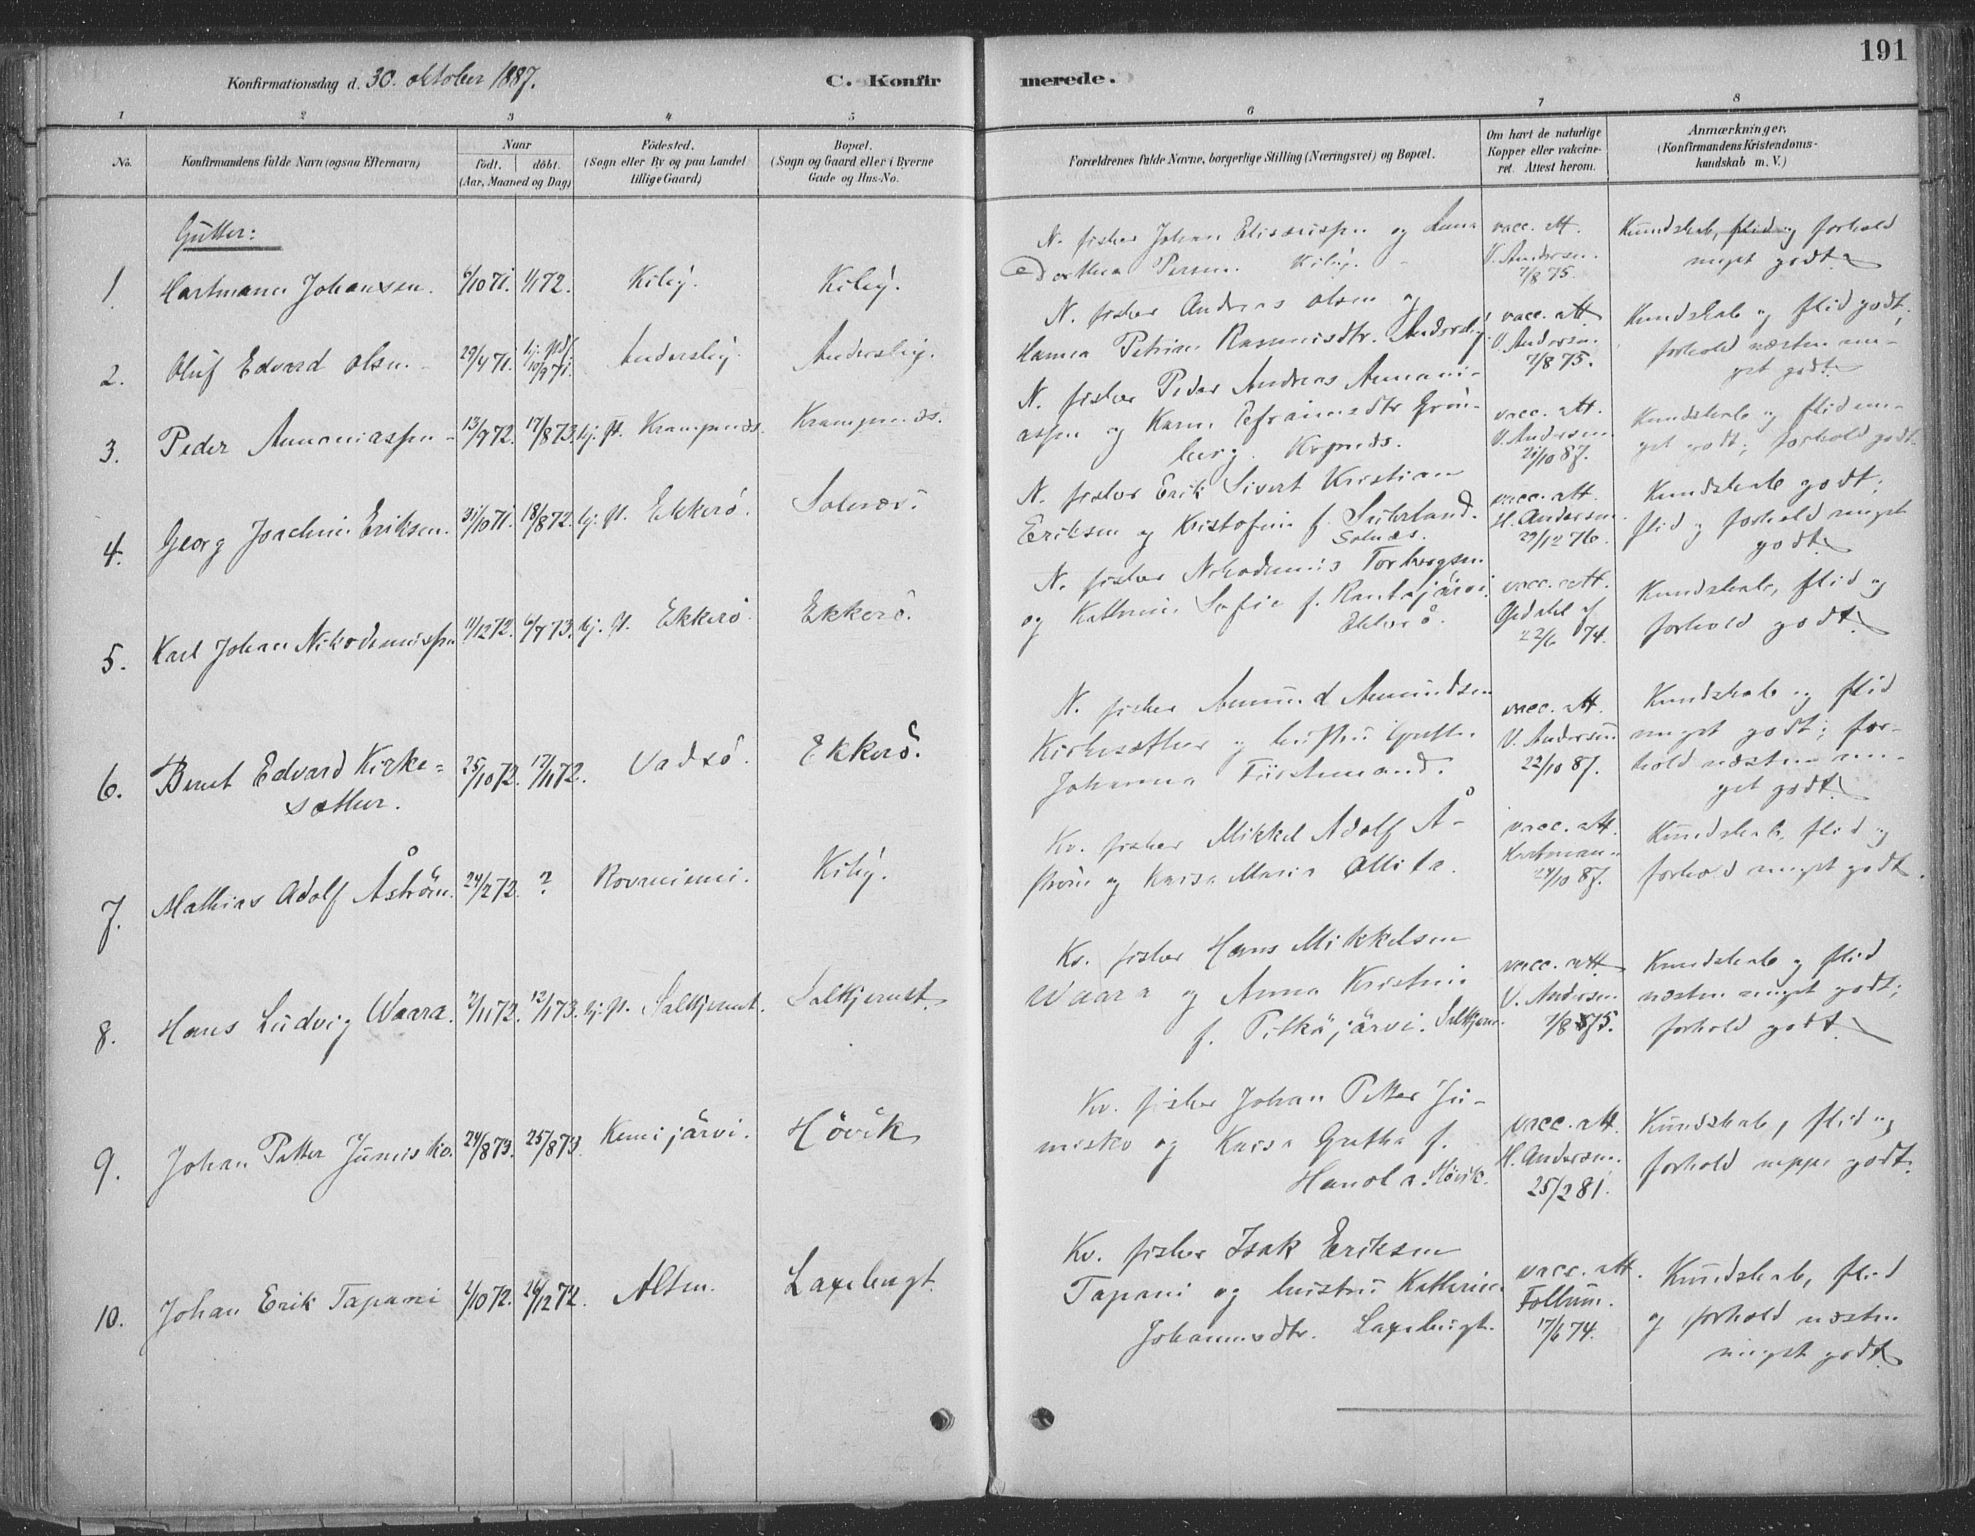 191
Konfirmationsdag d. 30. oktober 1887.
C. Konfirmerede.
1 2 3 4 5 6 7 8
No.
Konfirmandens fulde Navn (ogsaa Efternavn)
Naar
født. døbt.
(Aar, Maaned og Dag)
Fødested.
(Sogn eller By og paa Landet
tillige Gaard)
Bopæl.
(Sogn og Gaard eller i Byerne
Gade og Hus-No.
Forældrenes fulde Navne, borgerlige Stilling (Næringsvei) og Bopæl.
Om havt de naturlige
Kopper eller vakcine-
ret. Attest herom.
Anmærkninger.
(Konfirmandens Kristendoms-
kundskab m. V.)
Gutter:
1. Hartmann Johansen. 6/10 71. 1/1 72. Kiby. Kiby.
N. fisker Johan Elisæussen og Anna
Dorthea Persen. Kiby.
vacc. att.
V. Andersen.
7/8 75.
Kundskab, flid og forhold
meget godt.
2. Oluf Edvard Olsen. 29/4 71. 10/9 71. Andersby. Andersby.
N. fisker Andreas Olsen og
Hanna Petrine Rasmusdtr. Andersby.
vacc. att
V. Andersen.
7/8 75.
Kundskab og flid godt,
forhold næsten me-
get godt.
3. Peder Ananiassen 13/7 72. 17/8 73. hj. st. Krampenæs. Krampenæs.
N. fisker Peder Andreas Anani-
assen og Karen Efraimsdtr Grön-
berg. Krpnæs.
vacc. att.
V. Andersen
21/10 87.
Kundskab og flid me-
get godt; forhold godt.
4. Georg Joachim Eriksen. 31/10 71. 18/8 72. hj. st. Ekkerö. Solnæs.
N. fisker Erik Sivert Kristian
Eriksen og Kristofine f. Suhrland.
Solnæs.
vacc. att.
H. Andersen.
29/12 76.
Kundskab godt;
flid og forhold meget
godt.
5. Karl Johan Nikodemussen 11/12 72. 6/7 73. hj. st. Ekkerö. Ekkerö.
N. fisker Nikodemus Torbergsen
og Kathrine Sofie f. Rantajärvi.
Ekkerö.
vacc. att.
22/6 74.
Kundskab, flid og
forhold godt.
6. Bernt Edvard Kirke-
sæther. 25/10 72. 17/11 72. Vadsö. Ekkerö.
N. fisker Amund Amundsen
Kirkesæther og hustru Grethe
Johanna Fürstmand.
vacc. att.
V. Andersen
22/10 87.
Kundskab og flid
meget godt; for-
hold næsten me-
get godt.
7. Mathias Adolf Åström. 24/2 72. ? Rovaniemi. Kiby.
Kv. fisker Mikkel Adolf Å-
ström og Kaisa Maria Ollila.
vacc. att.
Hartmann
24/10 87.
Kundskab, flid og
forhold meget godt.
8. Hans Ludvig Waara. 2/11 72. 12/1 73. hj. st. Saltjernet. Saltjernet.
Kv. fisker Hans Mikkelsen
Waara og Anna Kristine
f. Pitkäjärvi. Saltjern.
vacc. att
V. Andersen
7/8 75.
Kundskab og flid
næsten meget godt;
forhold godt.
9. Johan Petter Jumisko. 24/8 73. 25/8 73. Kemijärvi. Hövik
Kv. fisker Johan Petter Ju-
misko og Kaisa Gretha f.
Hanola. Hövik.
vacc. att.
H. Andersen.
25/2 81.
Kundskab, flid og
forhold neppe godt.
10. Johan Erik Tapani 2/10 72. 26/12 72. Alten. Laxebugt.
Kv. fisker Isak Eriksen
Tapani og hustru Kathrine
Johannesdtr. Laxebugt.
vacc. att.
Follum.
17/6 74.
Kundskab, flid
og forhold næsten
meget godt.